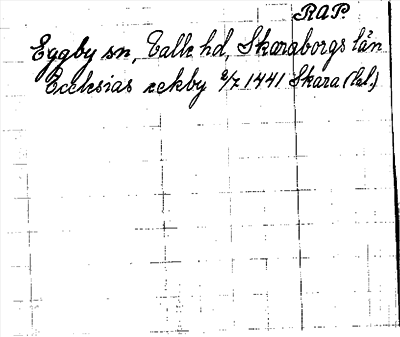 RAP.
Eggby sn, Valle hd, Skaraborgs län
Ecclesias ekby 2/7 1441 Skara (lat.)